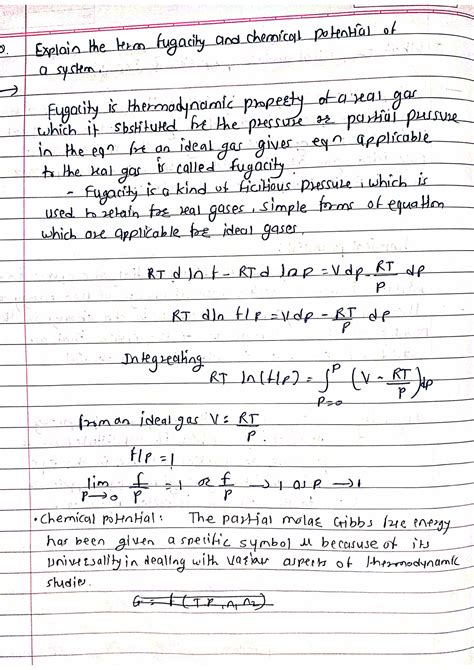 Explain the term fugacity and chemical potential of
a system.
→
Fugacity is thermodynamic propeety of a real gas
which if sbstituted for the pressure or partial pressure
in the eqn for an ideal gas gives eqn applicable
to the real gas is called fugacity.
- Fugacity is a kind of ficitious pressure, which is
used to retain for real gases, simple forms of equation
which are applicable for ideal gases.
RT d ln f - RT d ln p = V dp - RT/P dp
RT dln f/p = V dp - RT/P dp
Integreating
RT ln(f/p) = ∫_{P=0}^{P} (V - RT/P) dp
from an ideal gas V = RT/P
f/p = 1
lim P→0 f/P = 1 or f/P → 1 as P → 1
• Chemical potential: The partial molar Gibbs free energy
has been given a specific symbol u becasuse of its
universality in dealing with various aspects of thermodynamic
studies.
G = f (T P, n, n2)